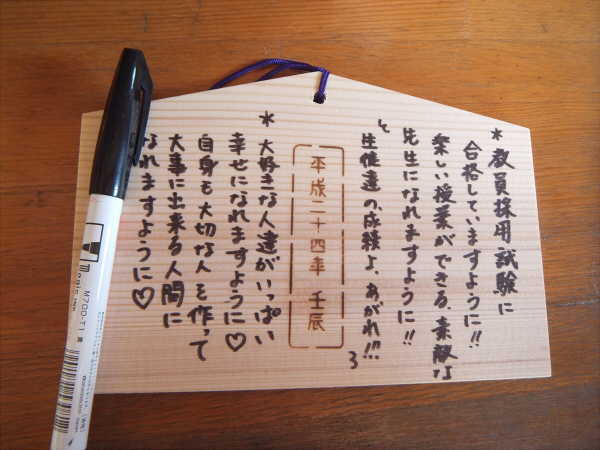 *教員採用試験に
合格していますように!!
楽しい授業ができる、素敵な
先生になれますように!!
生徒達の、成績よ、あがれ!!!
平成二十四年 壬辰
*大好きな人達がいっぱい
幸せになれますように♡
自身も大切な人を作って
大事に出来る人間に
なれますように♡
Magic INK
M700-T1 黒